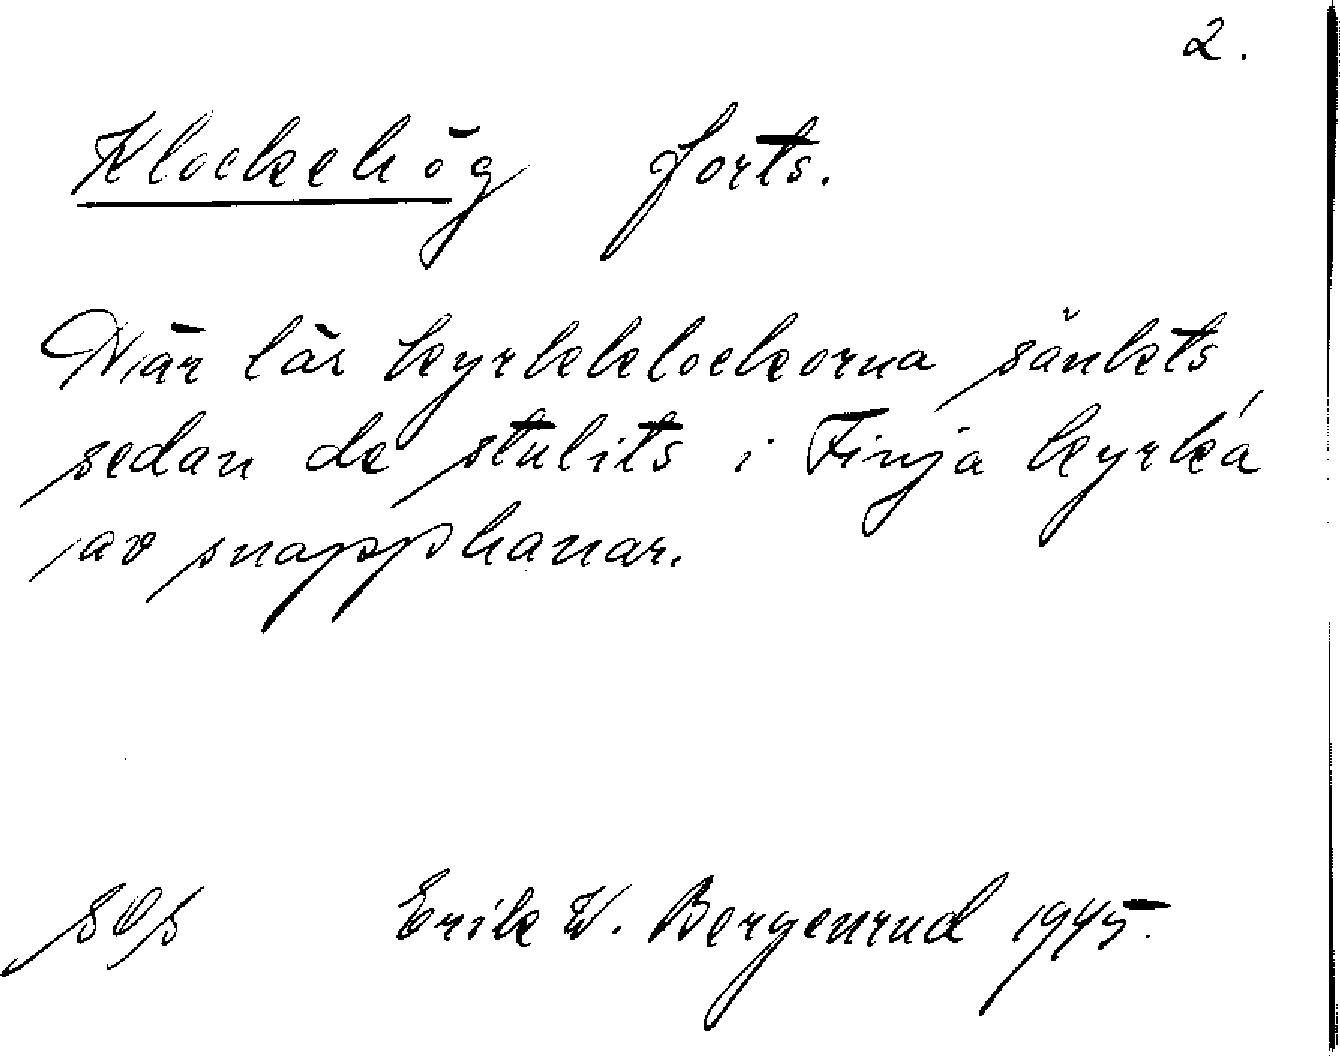 2.
Klockehög forts.
När lär kyrkklockorna sänkts
sedan de stulits i Finja kyrka
av snapphanar.
Erik W. Bergenrud 1945.